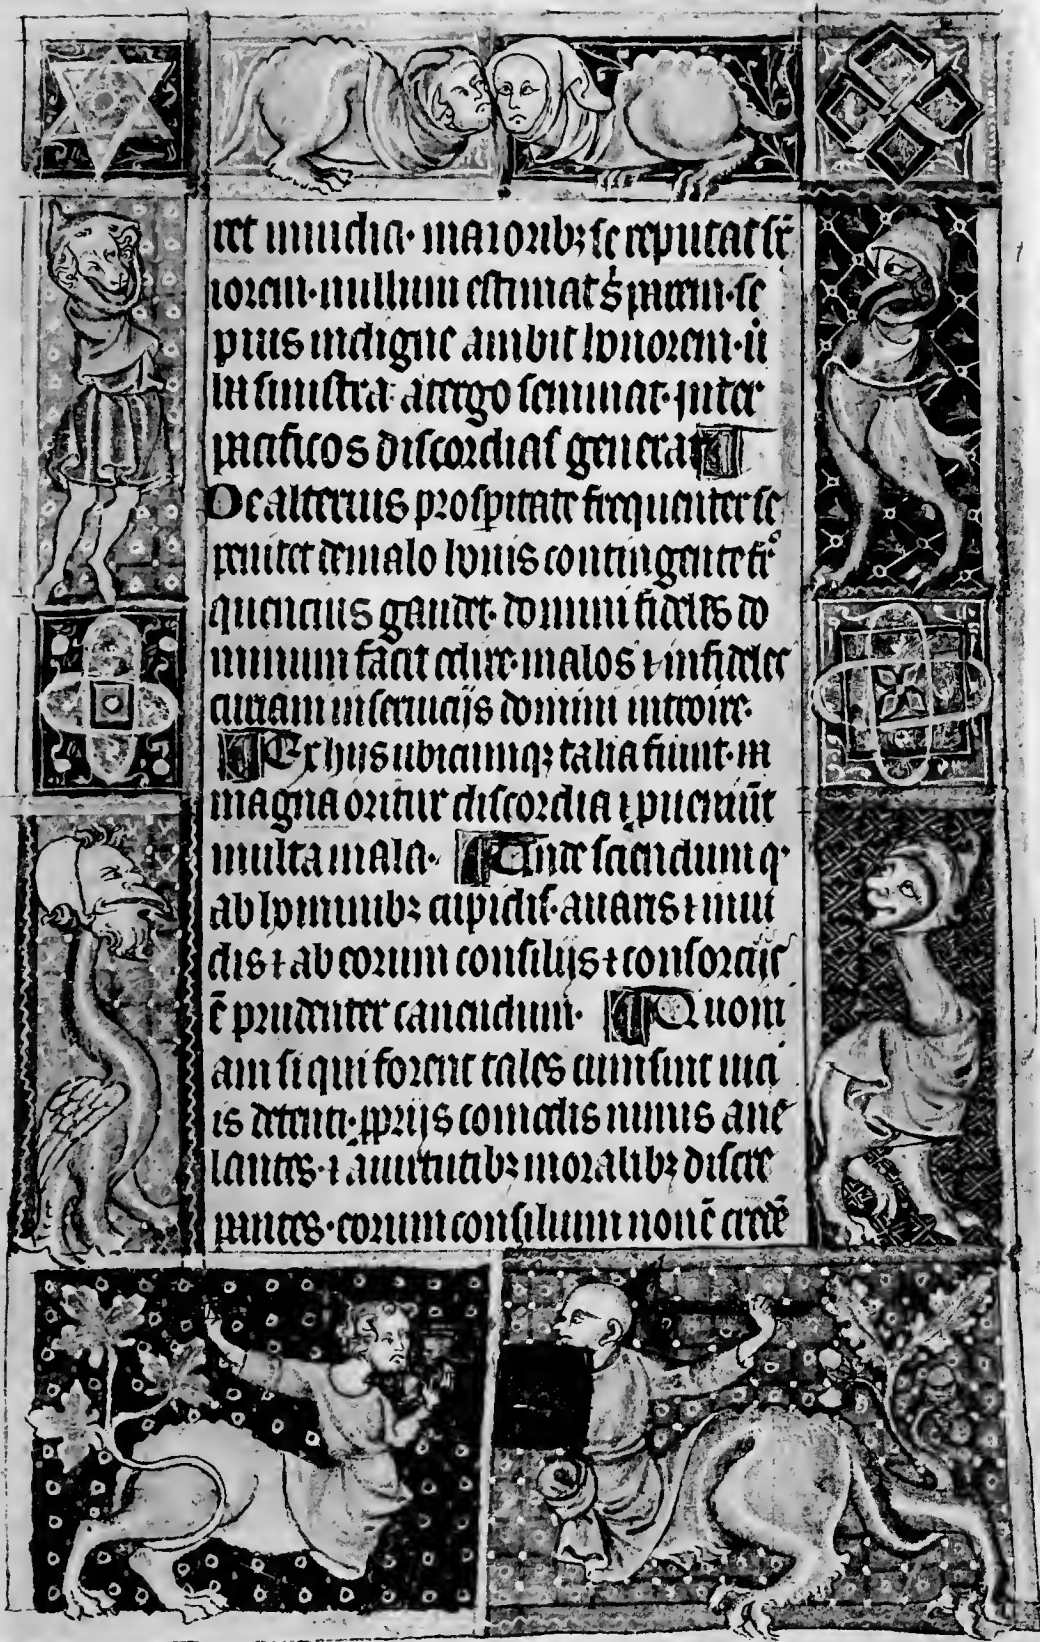 ret inuidia· maioribꝫ se reputat sc̄
iorem·nullum estimat s̓ parem·se
pius indigne ambit honorem·ū
ba sinistra· atergo seminat·inter
pacificos discordias generat
De alterius prosꝑitate frequenter se
penitet de malo bonis contingente fr̄
quencius gaudet· domini fideles do
minum facit odire·malos ⁊ infideles
curiam in seruicijs domini introire·
Ex hijs ubicumqꝫ talia fiunt·in
magna oritur discordia ⁊ ꝓueniūt
multa mala· Unde sciendum qꝫ
ab hominibꝫ cupidis·auaris ⁊ inui
dis ⁊ ab eorum consilijs ⁊ consorcijs
ē prudenter cauendum· Quoni
am si qui forent tales cum sint uici
is detenti·ꝓprijs comodis nimis ane
lantes·⁊ a uirtutibꝫ moralibꝫ discre
pantes·eorum consilium non ē crede̅